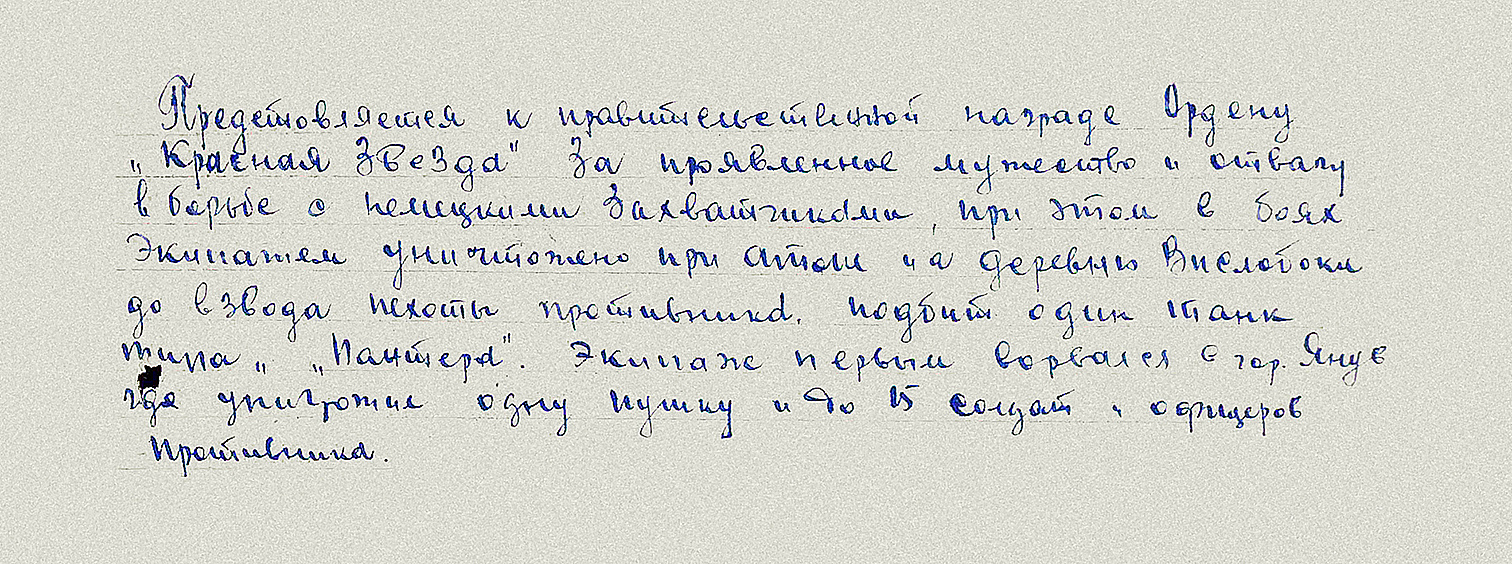 Предстовляется к правительственной награде Ордену
„Красная Звезда" За проявленное мужество и отвагу
в борьбе с немецкими Захватчиками, при этом в боях
Экипажем уничтожено при атаки на деревню Вислобоки
до взвода пехоты противника. подбит один танк
типа „ „Пантера". Экипаж первым ворвался в гор. Янув
где уничтожил одну пушку и до 15 солдат и офицеров
Противника.